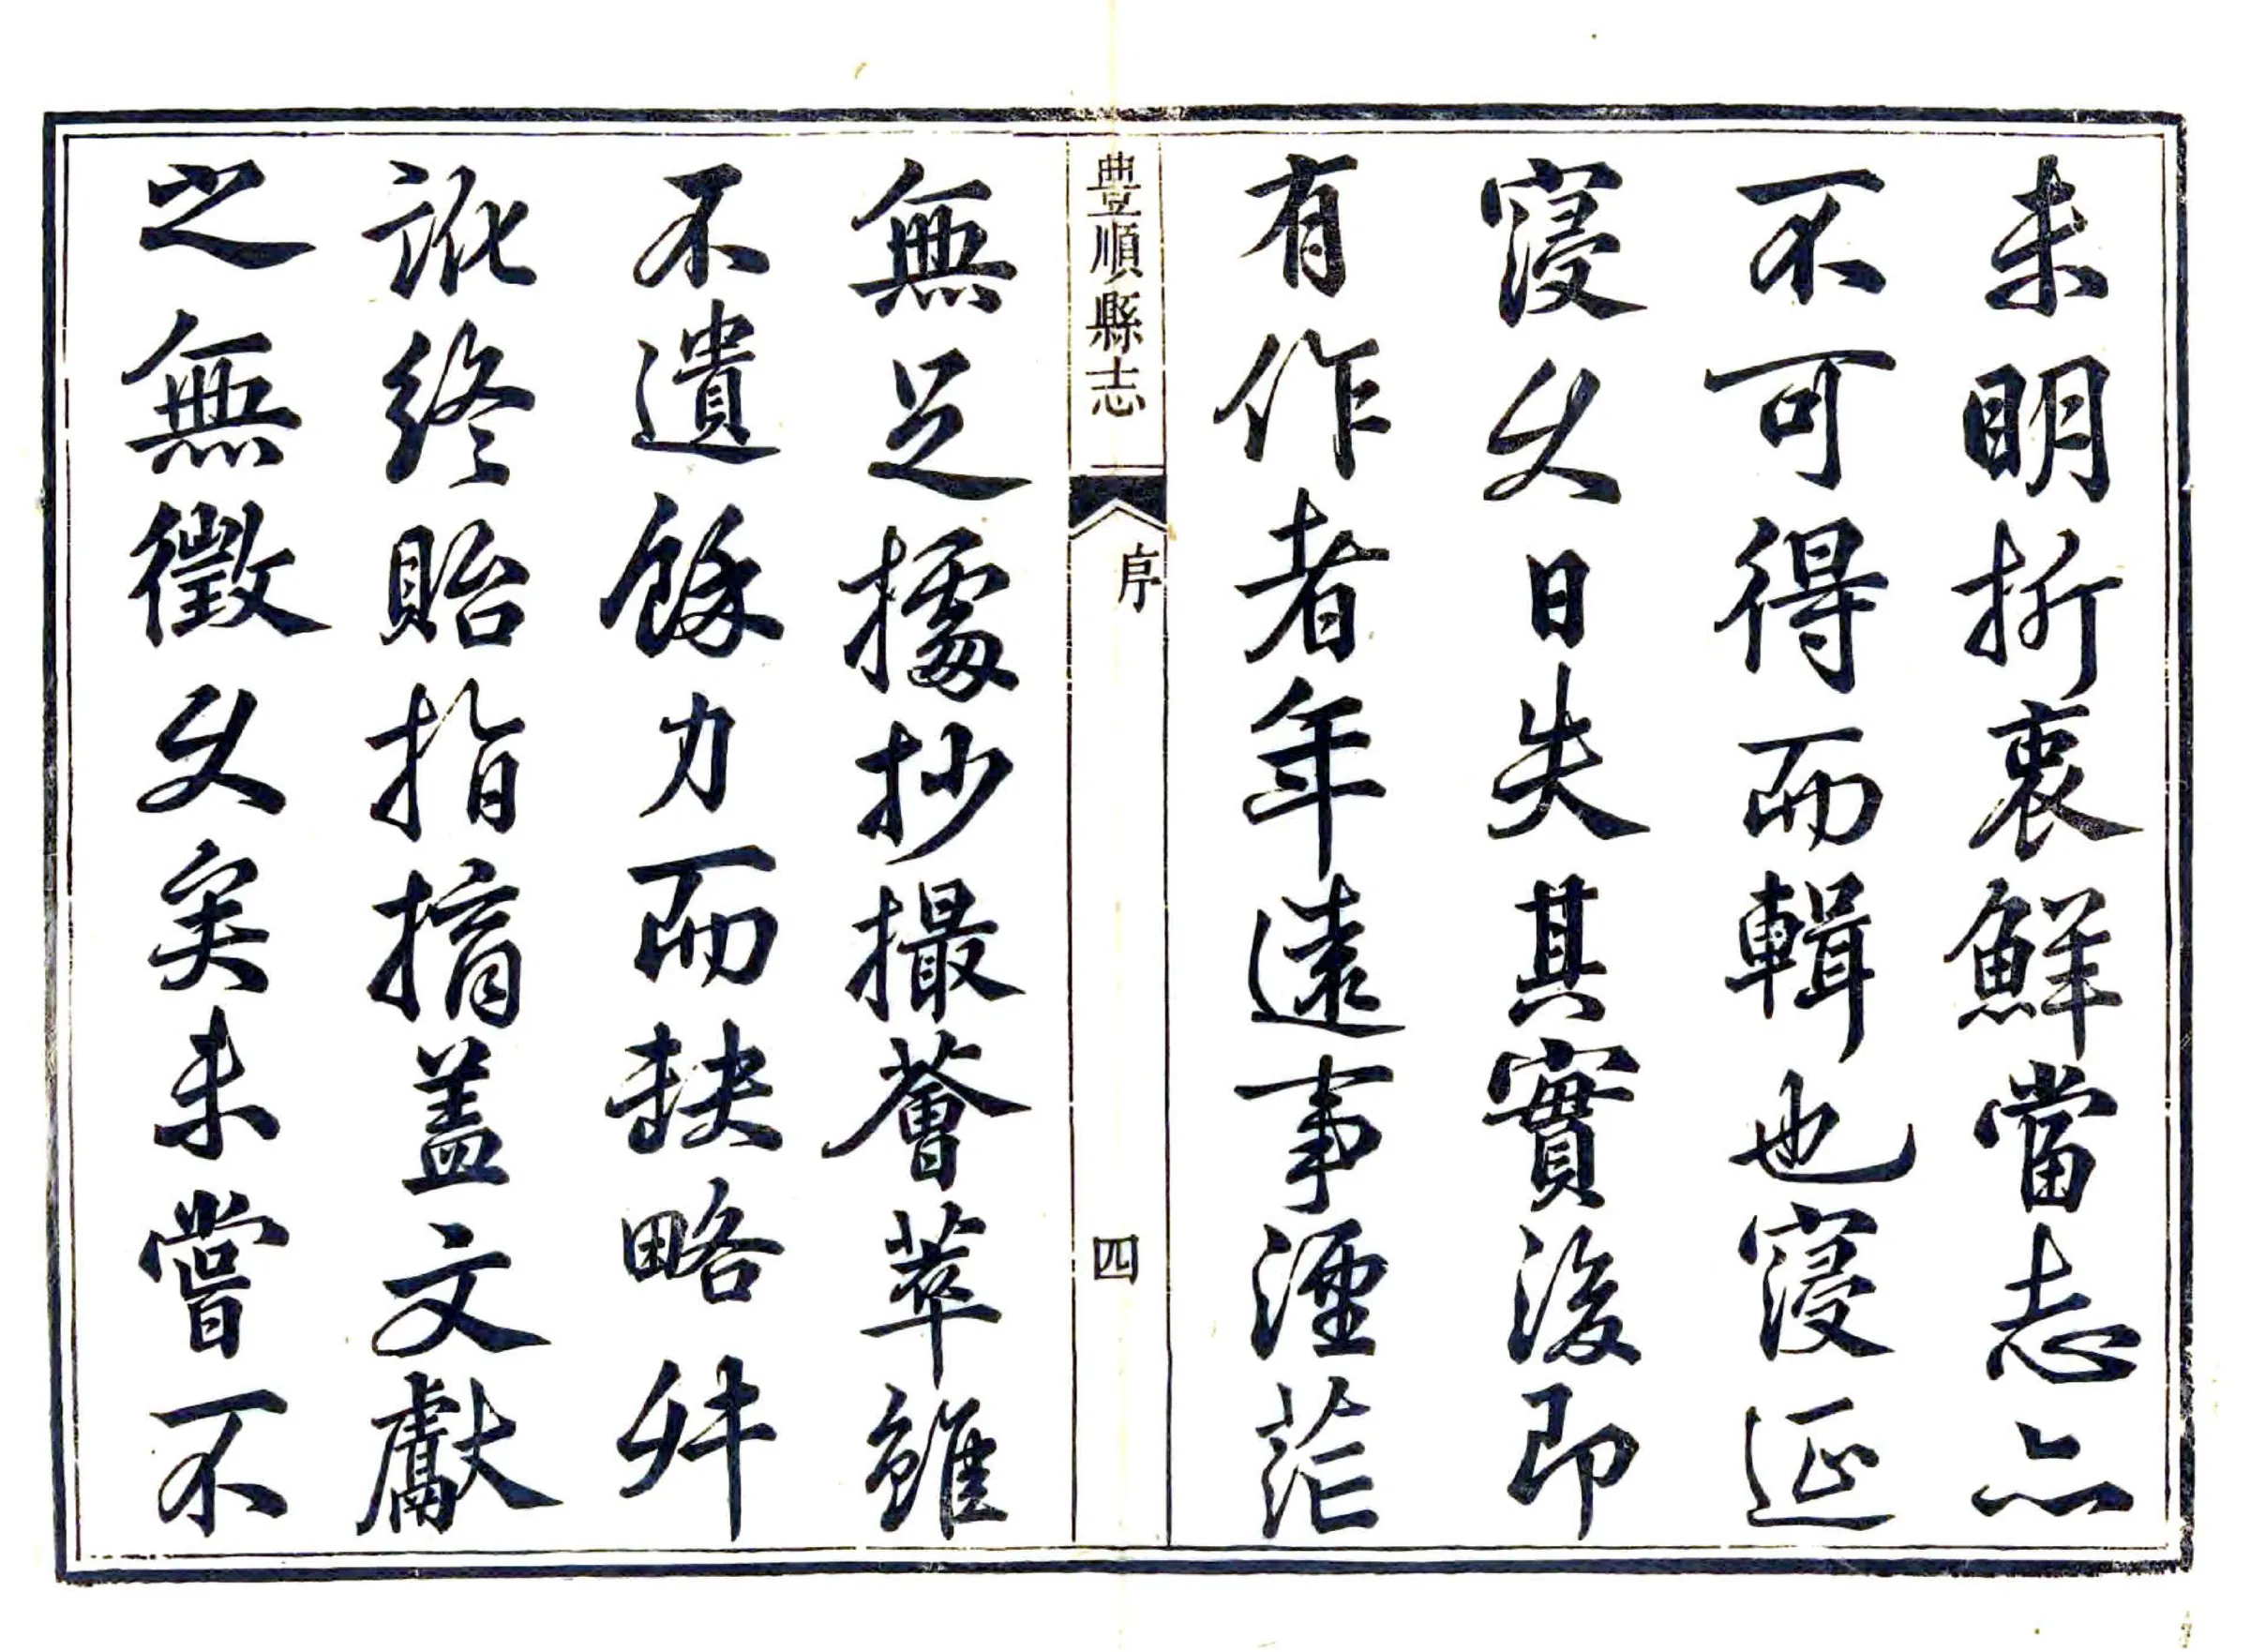 未明折衷鮮當志亦
不可得而輯也寖延
寖久日失其實後即
有作者年遠事湮茫
豊順縣志 序 四
無足據抄撮薈萃雖
不遺餘力而缺略舛
訛終貽指摘盖文獻
之無徵久矣未嘗不